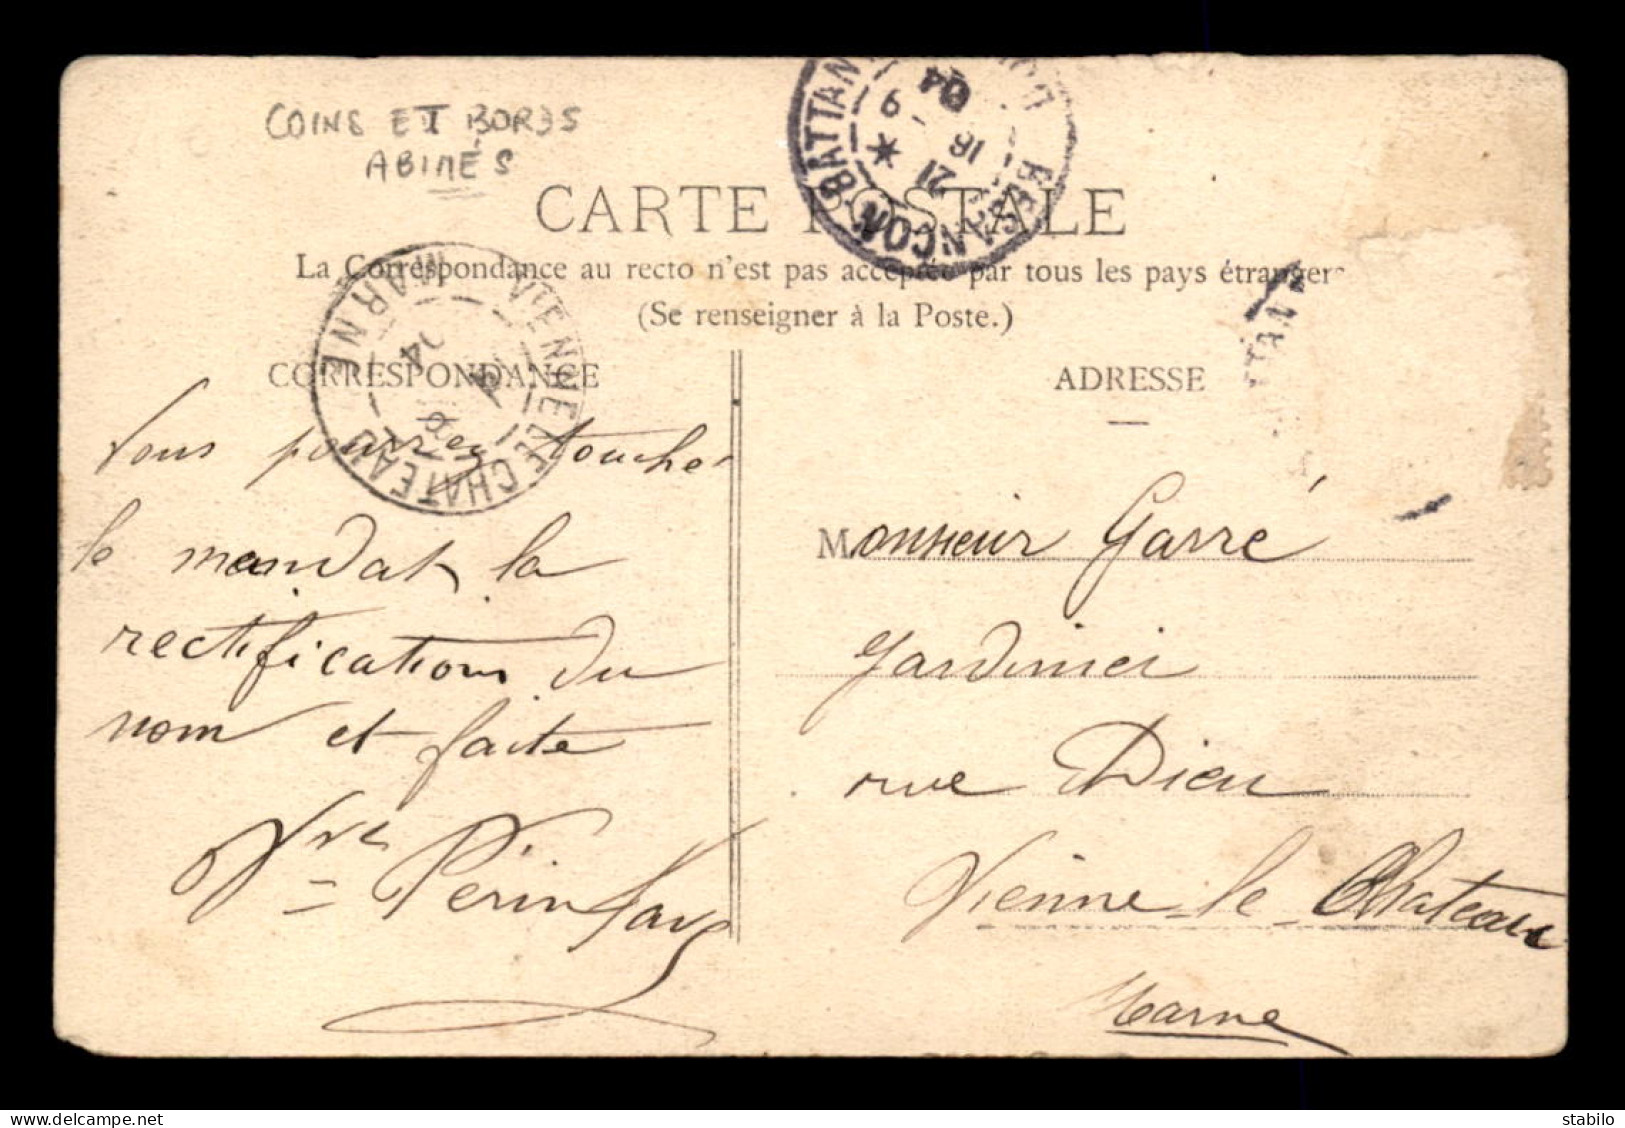 COINS ET BORDS
ABIMÉS
CARTE POSTALE
La Correspondance au recto n'est pas acceptée par tous les pays étrangers
(Se renseigner à la Poste.)
CORRESPONDANCE
ADRESSE
BESANÇON-BATTANT
DOUBS
21
16 - 9
04
VIENNE LE CHATEAU
MARNE
04
TTANT
Vous pourrez toucher
le mandat la
rectification du
nom est faite
Vve Perin
Monsieur Garré
Jardinier
rue Dieu
Vienne-le-Château
Marne
stabilo
delcampe.net